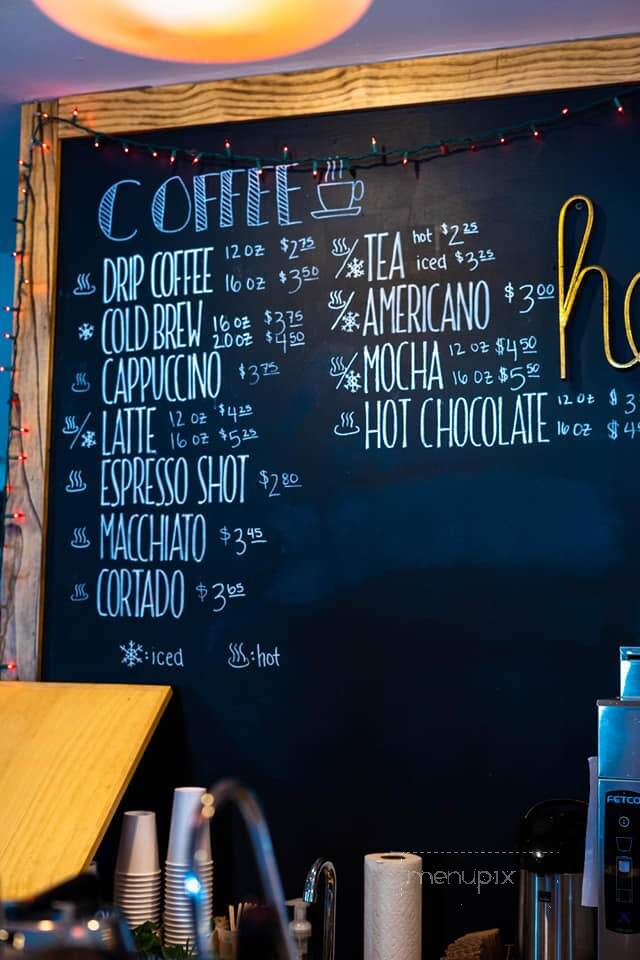 COFFEE
DRIP COFFEE 12 oz $2.75
16 oz $3.50
COLD BREW 16 oz $3.75
20 oz $4.50
CAPPUCCINO $3.75
LATTE 12 oz $4.25
16 oz $5.25
ESPRESSO SHOT $2.80
MACCHIATO $3.45
CORTADO $3.65
:iced :hot
TEA hot $2.25
iced $3.25
AMERICANO $3.00
MOCHA 12 oz $4.50
16 oz $5.50
HOT CHOCOLATE 12 oz $3
16 oz $4
ho
FETCO
menupix